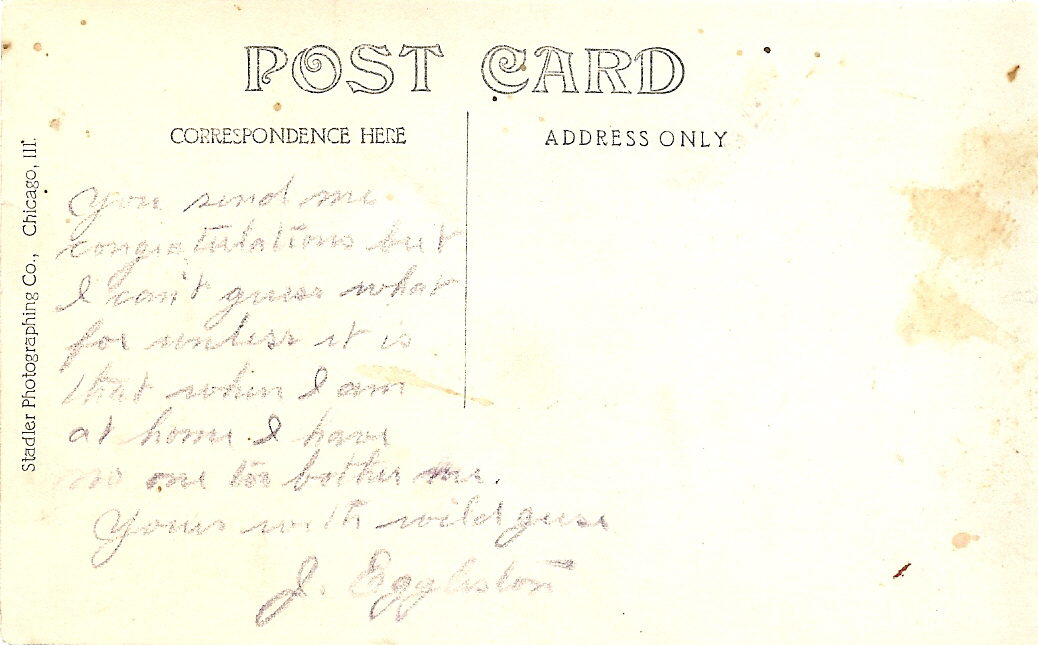 POST CARD
CORRESPONDENCE HERE
ADDRESS ONLY
Stadler Photographing Co., Chicago, Ill.
You send me
congratulations but
I can't guess what
for unless it is
that when I am
at home I have
no one to bother me.
Yours with wild guess
J. Eggleston